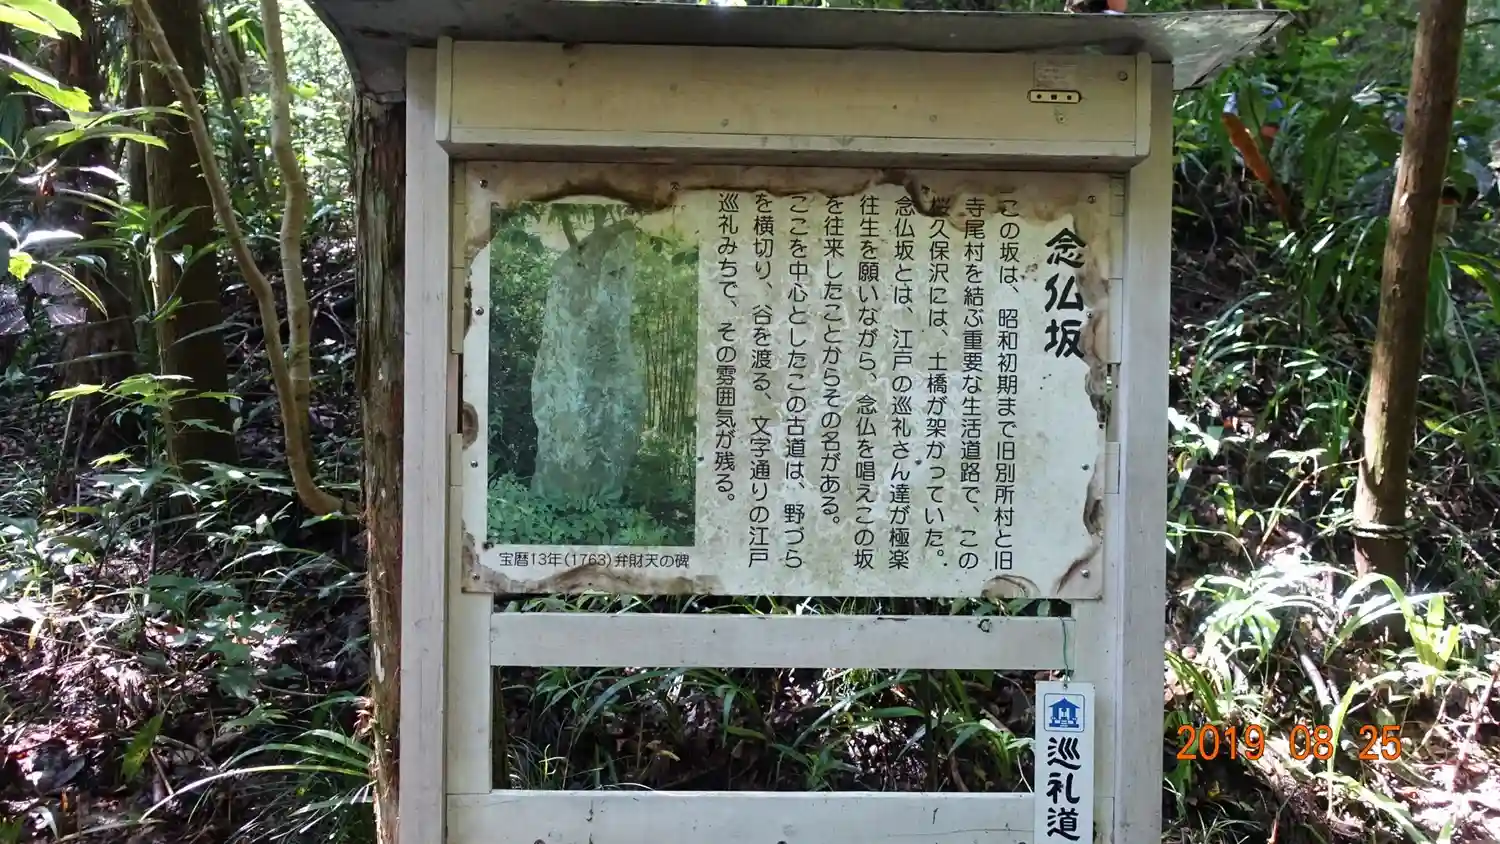 念仏坂
この坂は、昭和初期まで旧別所村と旧
寺尾村を結ぶ重要な生活道路で、この
桜久保沢には、土橋が架かっていた。
念仏坂とは、江戸の巡礼さん達が極楽
往生を願いながら、念仏を唱えこの坂
を往来したことからその名がある。
ここを中心としたこの古道は、野づら
を横切り、谷を渡る、文字通りの江戸
巡礼みちで、その雰囲気が残る。
宝暦13年(1763)弁財天の碑
巡礼道
2019 08 25